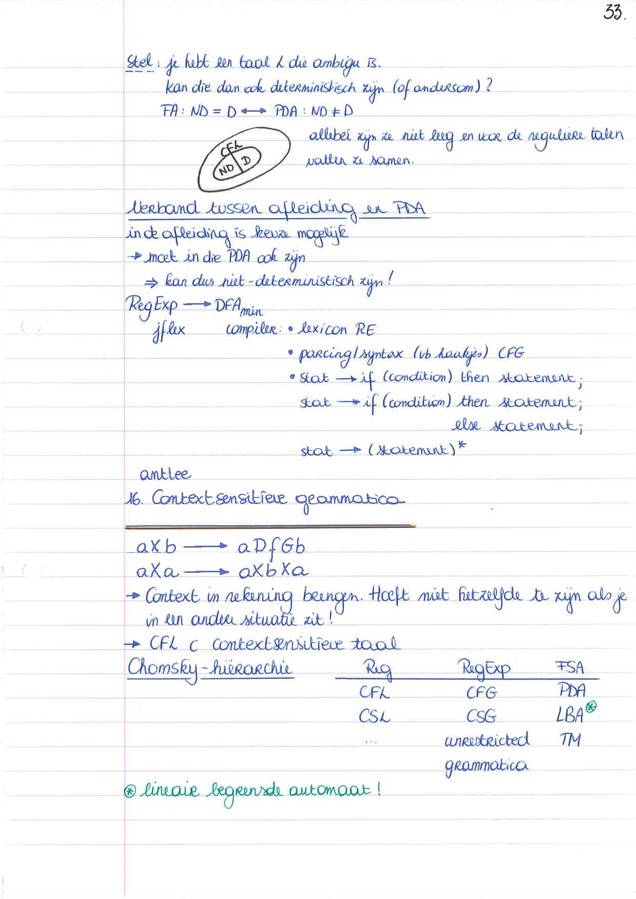 33.
Stel: je hebt een taal L die ambigu is.
kan die dan ook deterministisch zijn (of andersom)?
FA: ND = D ↔ PDA: ND ≠ D
allebei zijn ze niet leeg en voor de reguliere talen
vallen ze samen.
CFL
ND D
Verband tussen afleiding en PDA
in de afleiding is keuze mogelijk
→ moet in die PDA ook zijn
⇒ kan dus niet-deterministisch zijn!
RegExp → DFA min
jflex compiler: • lexicon RE
• parcing/syntax (vb haakjes) CFG
• stat → if (condition) then statement;
stat → if (condition) then statement;
else statement;
stat → (statement)*
antlee
16. Contextsensitieve grammatica
aXb → aDfGb
aXa → aXbXa
→ Context in rekening brengen. Hoeft niet hetzelfde te zijn als je
in een andere situatie zit!
→ CFL ⊂ contextsensitieve taal
Chomsky-hiërarchie Reg RegExp FSA
CFL CFG PDA
CSL CSG LBA ⊛
... unrestricted TM
grammatica
⊛ lineair begrensde automaat!